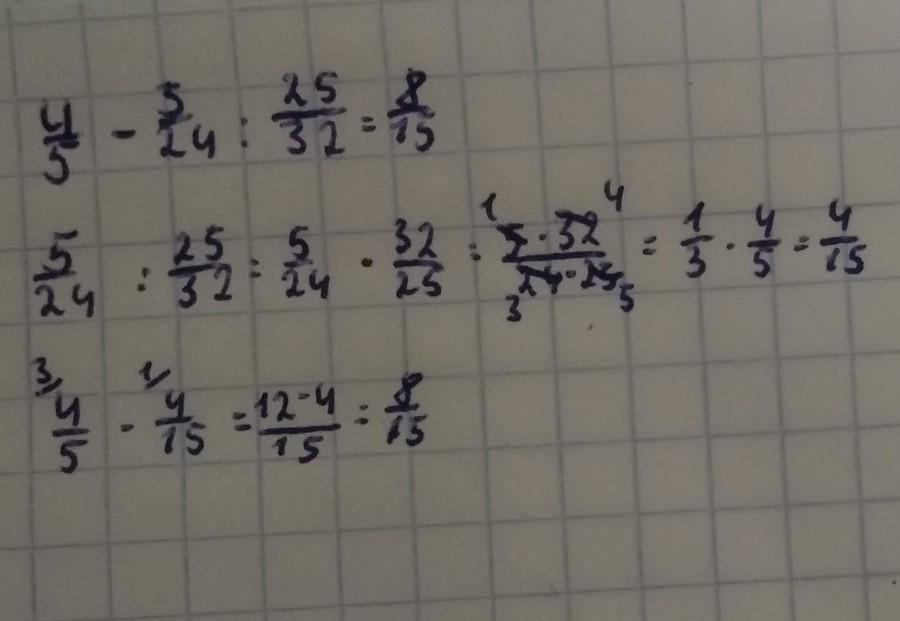 4/5 - 5/24 : 25/32 = 8/15
5/24 : 25/32 = 5/24 · 32/25 = 1 5 · 32 4 / 3 24 · 25 5 = 1/3 · 4/5 = 4/15
3/ 4/5 - 1/ 4/15 = 12-4/15 = 8/15